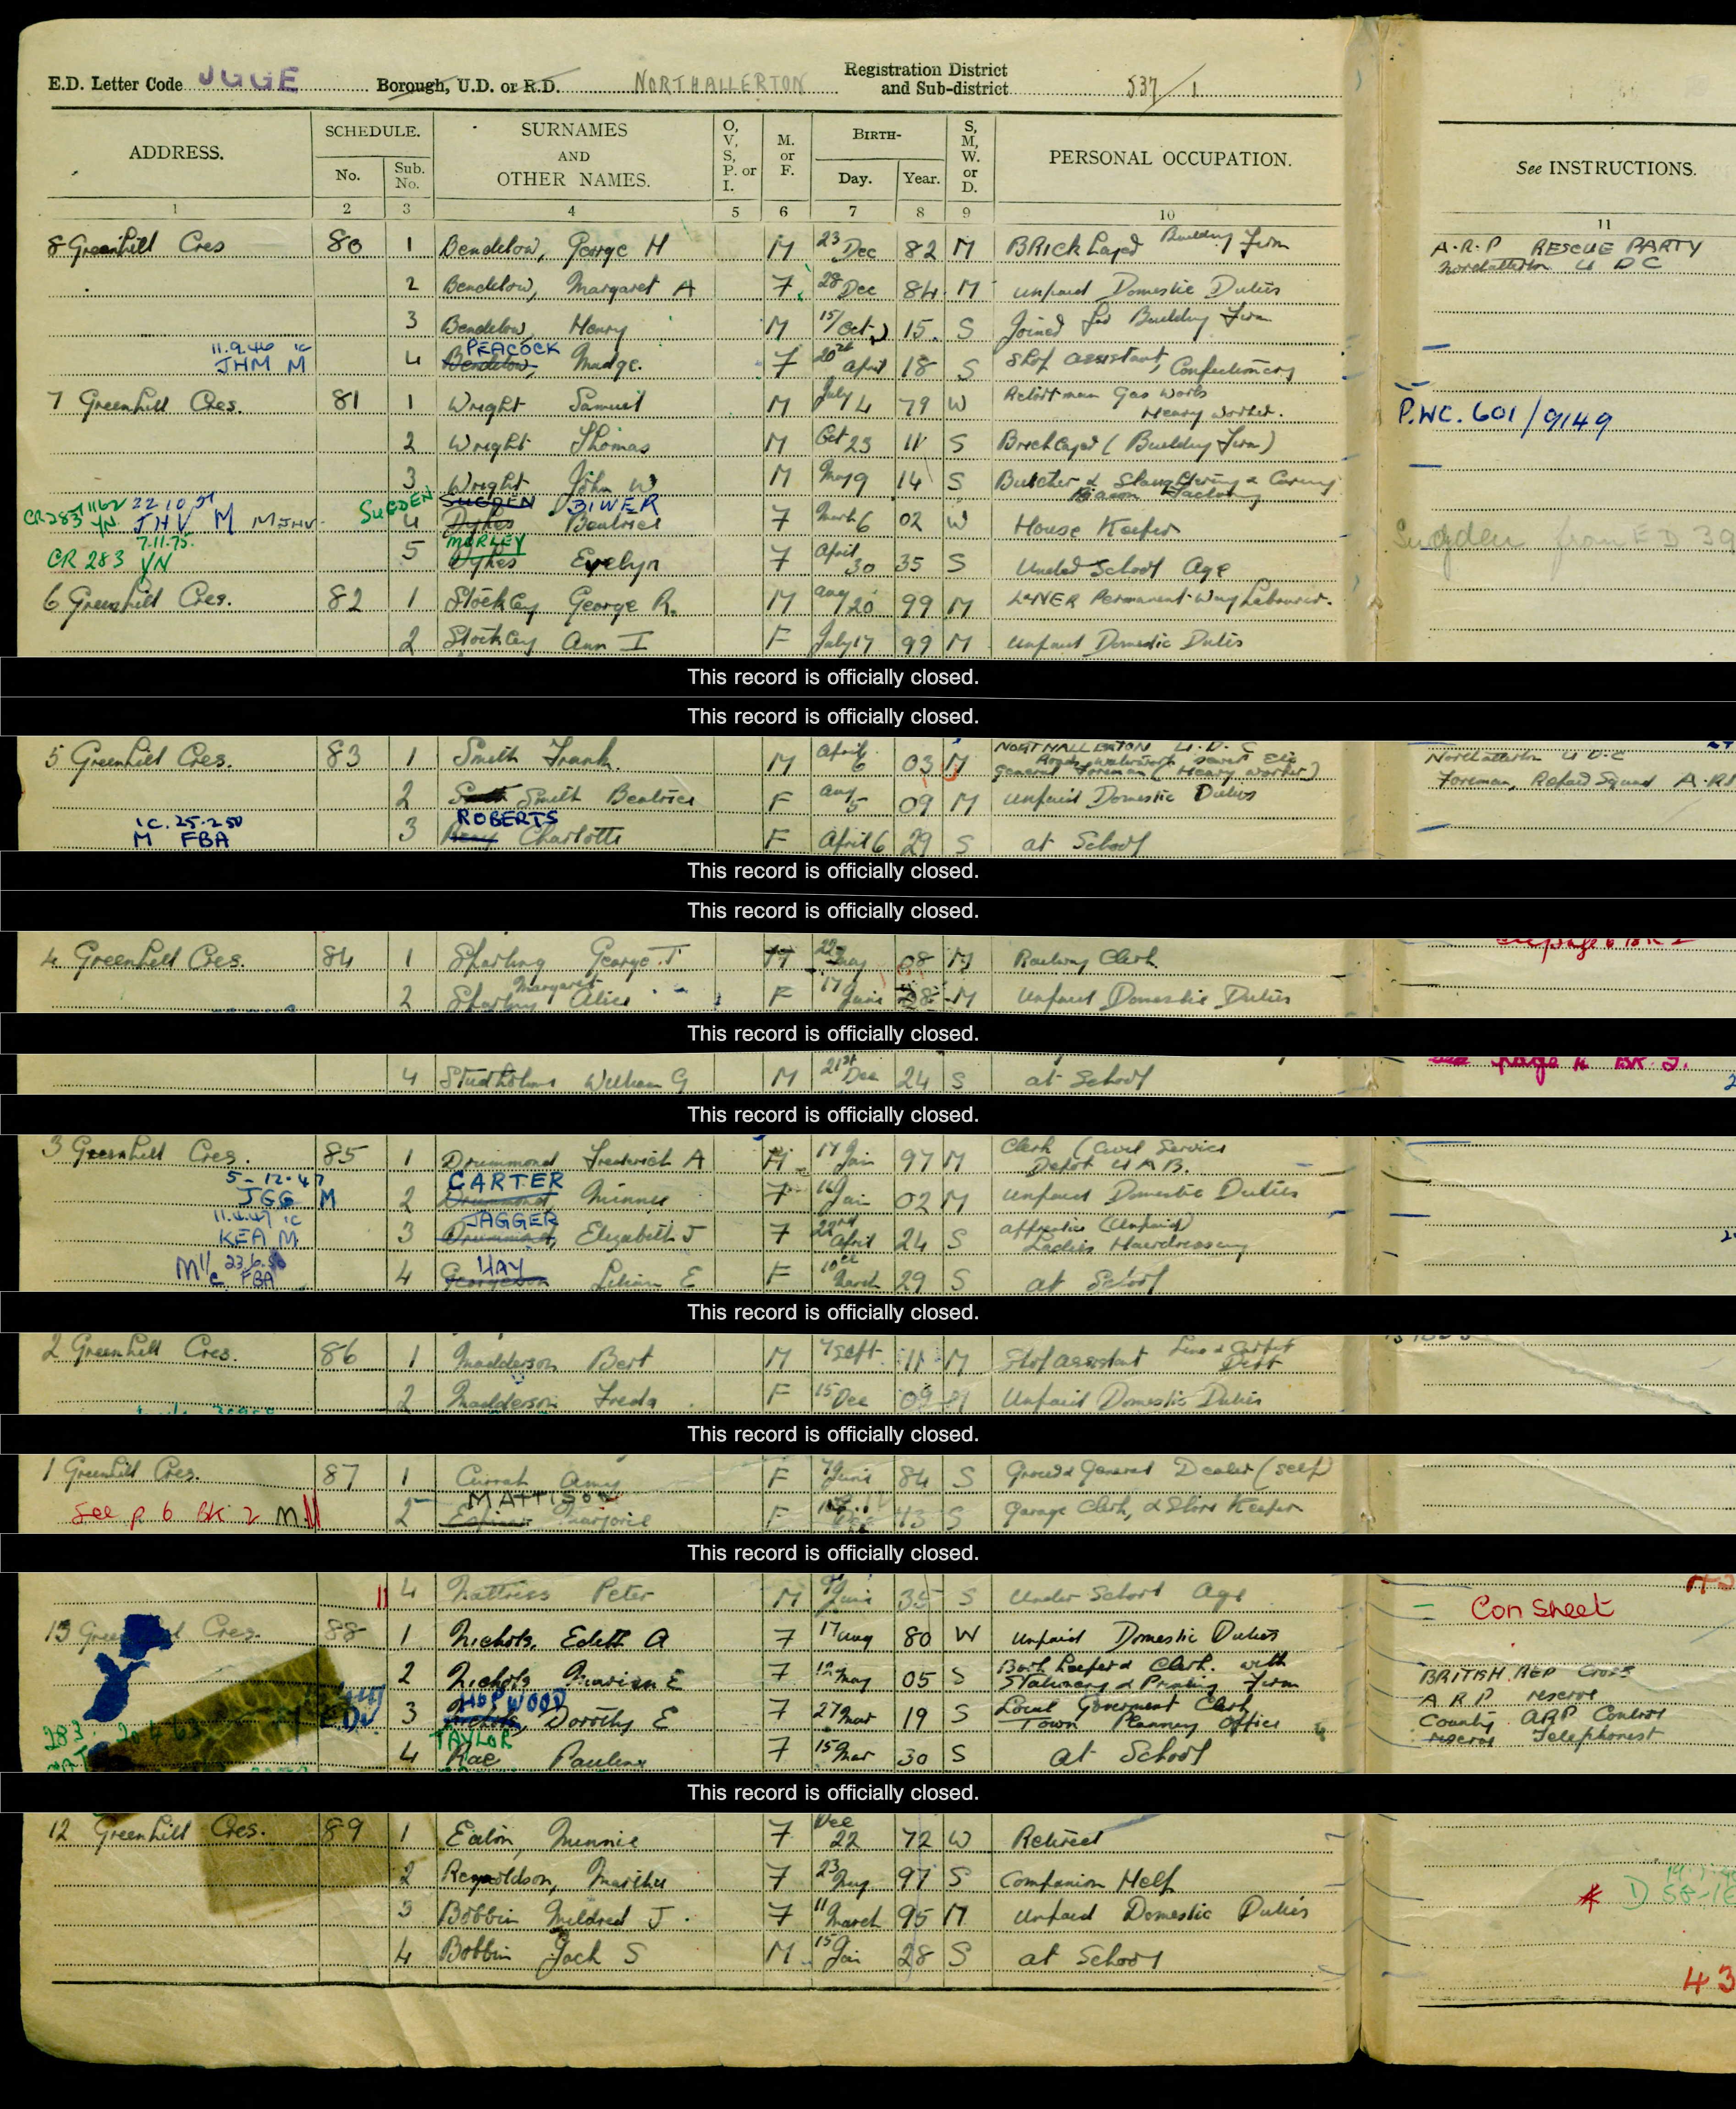 E.D. Letter Code JGGE Borough, U.D. or R.D. NORTHALLERTON Registration District and Sub-district 537/1
ADDRESS. SCHEDULE. No. Sub. No. SURNAMES AND OTHER NAMES. O, V, S, P. or I. M. or F. BIRTH- Day. Year. S, M, W. or D. PERSONAL OCCUPATION. See INSTRUCTIONS.
1 2 3 4 5 6 7 8 9 10 11
8 Greenhill Cres 80 1 Bendelow, George H M 23 Dec 82 M BRICK Layer Building Firm A.R.P RESCUE PARTY
Northallerton U D C
2 Bendelow, Margaret A F 28 Dec 84 M Unpaid Domestic Duties
3 Bendelow, Henry M 15 Oct 15 S Joiner for Building Firm
11.9.46 JHM M 4 Bendelow, PEACOCK Madge. F 20th April 18 S Shop assistant, Confectionery
7 Greenhill Cres. 81 1 Wright Samuel M July 4 79 W Retort man Gas Works Heavy Worker. P.WC.601/9149
2 Wright Thomas M Oct 23 11 S Bricklayer (Building Firm)
3 Wright John W M May 9 14 S Butcher & Slaughtering & Curing Bacon Factory
CR 283 YN 22.10.51 JHV M M JHV SUGDEN 4 Dykes SUGDEN Beatrice F March 6 02 W House Keeper Sugden from ED 39
CR 283 7.11.75. YN 5 Dykes MORLEY Evelyn F April 30 35 S Under School Age
6 Greenhill Cres. 82 1 Stockley George R. M Aug 20 99 M LNER Permanent Way Labourer.
2 Stockley Ann I F July 17 99 M Unpaid Domestic Duties
This record is officially closed.
This record is officially closed.
5 Greenhill Cres. 83 1 Smith Frank. M April 6 03 M NORTHALLERTON U.D.C General Foreman (Heavy Worker) Northallerton U.D.C
Foreman, Repair Squad A.R.P
2 Smith Beatrice F Aug 5 09 M Unpaid Domestic Duties
25.2.50 M FBA 3 ROBERTS Charlotte F April 6 29 S at School
This record is officially closed.
This record is officially closed.
4 Greenhill Cres. 84 1 Sparling George. T M 22 May 08 M Railway Clerk
2 Sparling Margaret Alice F 17 June 08 M Unpaid Domestic Duties
This record is officially closed.
4 Studholme William G M 21st Dec 24 S at School page BK 2.
This record is officially closed.
3 Greenhill Cres. 85 1 Drummond Frederick A M 17 Jan 97 M Clerk (Civil Service Depot U A B.
5-12-47 JGG M 2 Drummond CARTER Minnie F 16 Jan 02 M Unpaid Domestic Duties
11.4.47 KEA M 3 Drummond, JAGGER Elizabeth J F 22nd April 24 S Apprentice (Unpaid) Ladies Hairdressing
M/c 23.6.50 FBA 4 Georgeson HAY Lilian E F 10th March 29 S at School
This record is officially closed.
2 Greenhill Cres. 86 1 Madderson Bert M 7 Sept 11 M Shop assistant Lino & Carpet Dept
2 Madderson Freda F 15 Dec 09 M Unpaid Domestic Duties
This record is officially closed.
1 Greenhill Cres. 87 1 Currah Amy F 7 June 84 S Grocer & General Dealer (self)
See p 6 BK 2 M 2 MATTISON Marjorie F 13 S Garage Clerk, & Store Keeper
This record is officially closed.
4 Nattrass Peter M June 35 S Under School Age
Con Sheet
13 Cres. 88 1 Nichols, Edith A F 17 Aug 80 W Unpaid Domestic Duties
2 Nichols Marion E F 12 May 05 S Book keeper & Clerk. with Stationery & Printing Firm BRITISH RED Cross
A R P reserve
3 Nichols, HOPWOOD Dorothy E F 27 Mar 19 S Local Government Clerk Town Planning Office County ARP Control
reserve Telephonist
283 4 Rae TAYLOR Pauline F 15 Mar 30 S at School
This record is officially closed.
12 Greenhill Cres. 89 1 Eaton, Minnie F Dec 22 72 W Retired
2 Reynoldson, Martha F 23 Aug 97 S Companion Help
3 Bobbin Mildred J. F 11 March 95 M Unpaid Domestic Duties
4 Bobbin Jack S M 15 Jan 28 S at School
43